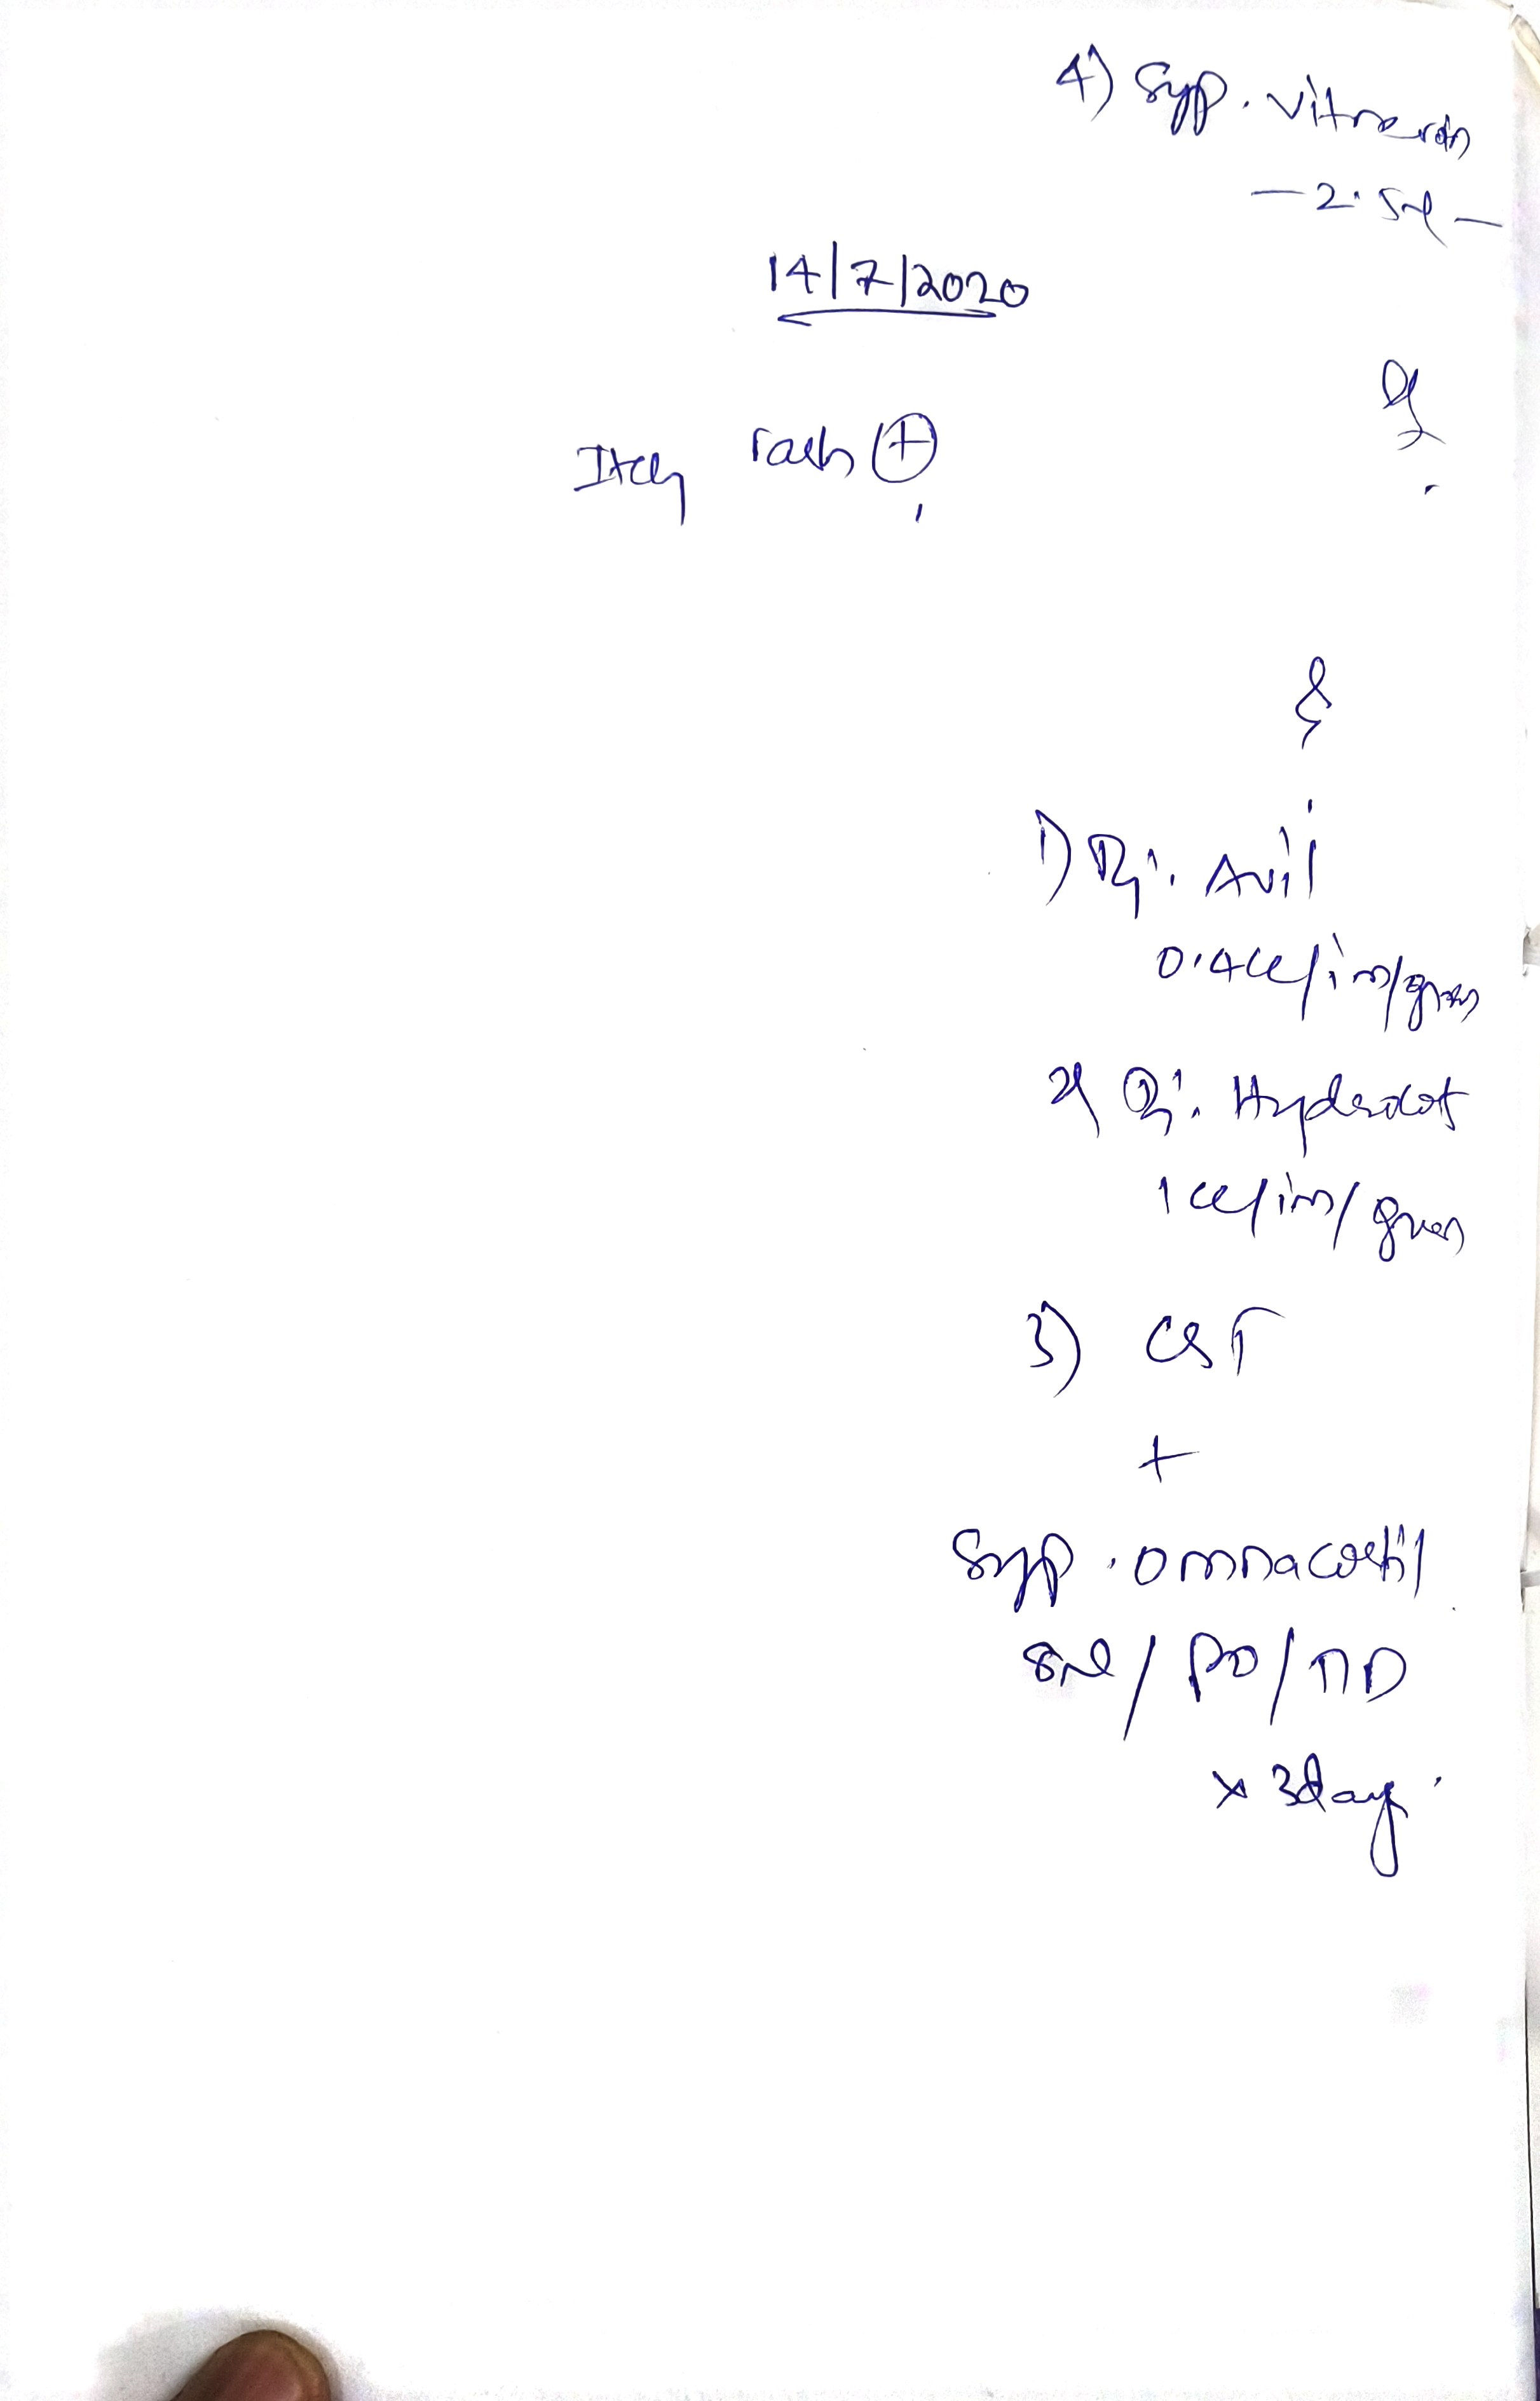 4) Syp. Vitneurin
- 2.5ml -
14/7/2020
Itchy rash (+)
1) Inj. Avil
0.4cc/im/given
2) Inj. Hydrocort
1cc/im/given
3) CST
+
Syp. omnacortil
8ml/PO/OD
x 3days